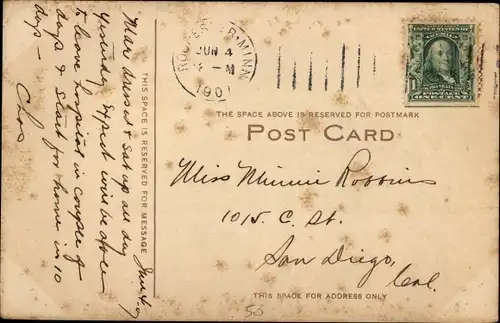 Were dressed & sat up all day
yesterday. Expect will be able
to leave hospital in couple of
days & start for home in 10
days —
Chas
June 4,
THIS SPACE IS RESERVED FOR MESSAGE
ROCHESTER, MINN.
JUN 4
M
190
UNITED STATES OF AMERICA
FRANKLIN
1 POSTAGE 1
ONE CENT
THE SPACE ABOVE IS RESERVED FOR POSTMARK
POST CARD
Miss Minnie Robbins
1015. C. St.
San Diego,
Cal.
THIS SPACE FOR ADDRESS ONLY
50